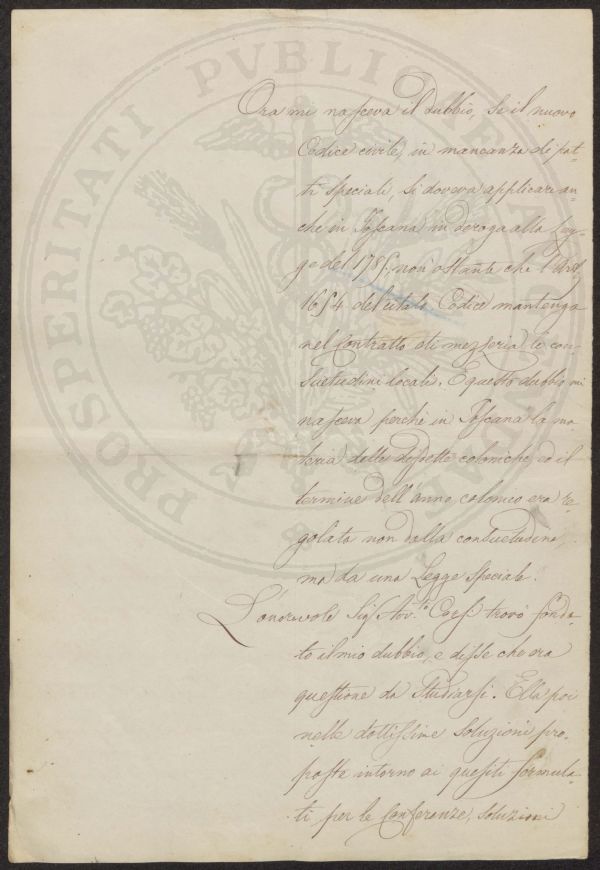 Ora mi nasceva il dubbio, se il nuovo
Codice civile, in mancanza di pat-
ti speciali, si doveva applicare an-
che in Toscana in deroga alla Leg-
ge del 1785. non ostante che l'Art.
1654 del citato Codice mantenga
nel Contratto di mezzeria le con-
suetudini locali. E questo dubbio mi
nasceva perchè in Toscana la ma
teria delle disdette coloniche, ed il
termine dell'anno colonico era re-
golata non dalla consuetudine,
ma da una Legge speciale.
L'onorevole Sig. Avv.to Corsi trovò fonda-
to il mio dubbio, e disse che era
questione da studiarsi. Ella poi
nelle dottissime soluzioni pro-
poste intorno ai quesiti formula-
ti per le Conferenze, soluzioni
PROSPERITATI PVBLICAE AVGENDAE